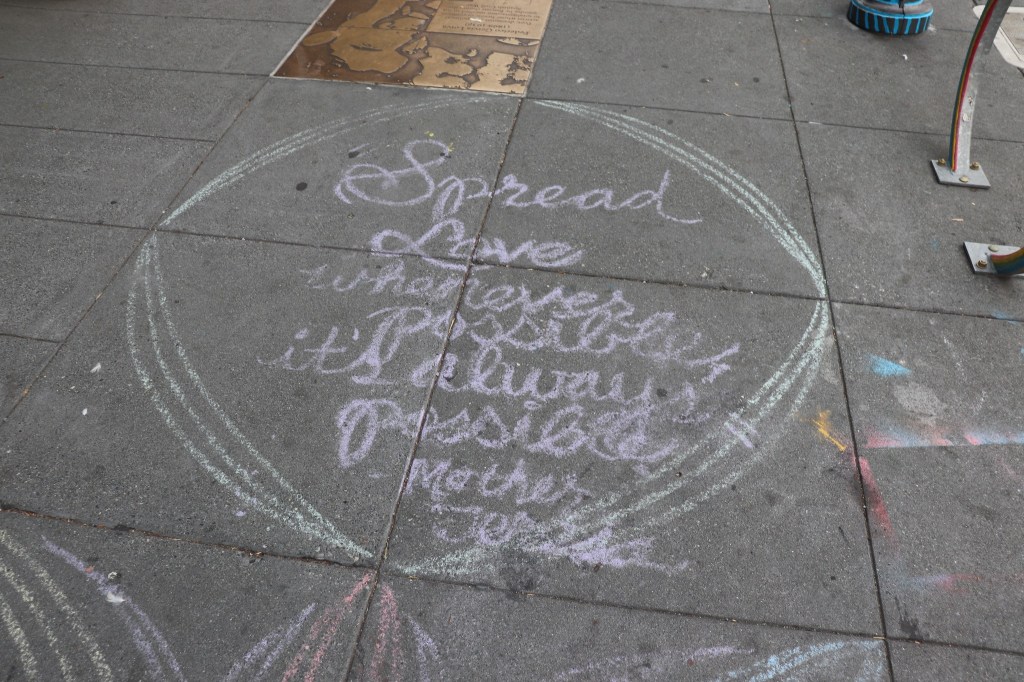 Spread
Love
whenever
possible,
it's always
possible
- Mother
Teresa